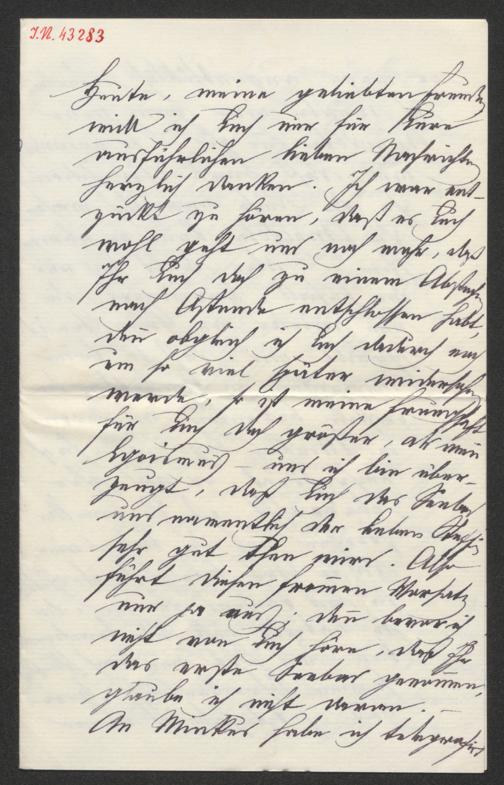 I.N. 43283
Heute, meine geliebten Freunde,
will ich Euch nur für Eure
ausführlichen lieben Nachrichten
herzlich danken. Ich war ent-
zückt zu hören, daß es Euch
wohl geht und noch mehr, daß
Ihr Euch doch zu einem Abstecher
nach Ostende entschlossen habt,
den obgleich ich Euch dadurch erst
um so viel später wiedersehen
werde, so ist meine Freundschaft
für Euch doch größer, als mein
Egoismus – und ich bin über-
zeugt, daß Euch das Seebad
und namentlich der lieben
sehr gut thun wird. Also
führt diesen from̅en Vorsatz
nur ja aus; den̅ bevor ich
nicht von Euch höre, daß Ihr
das erste Seebad genom̅en,
glaube ich nicht daran. –
An Minkus habe ich telegrafirt